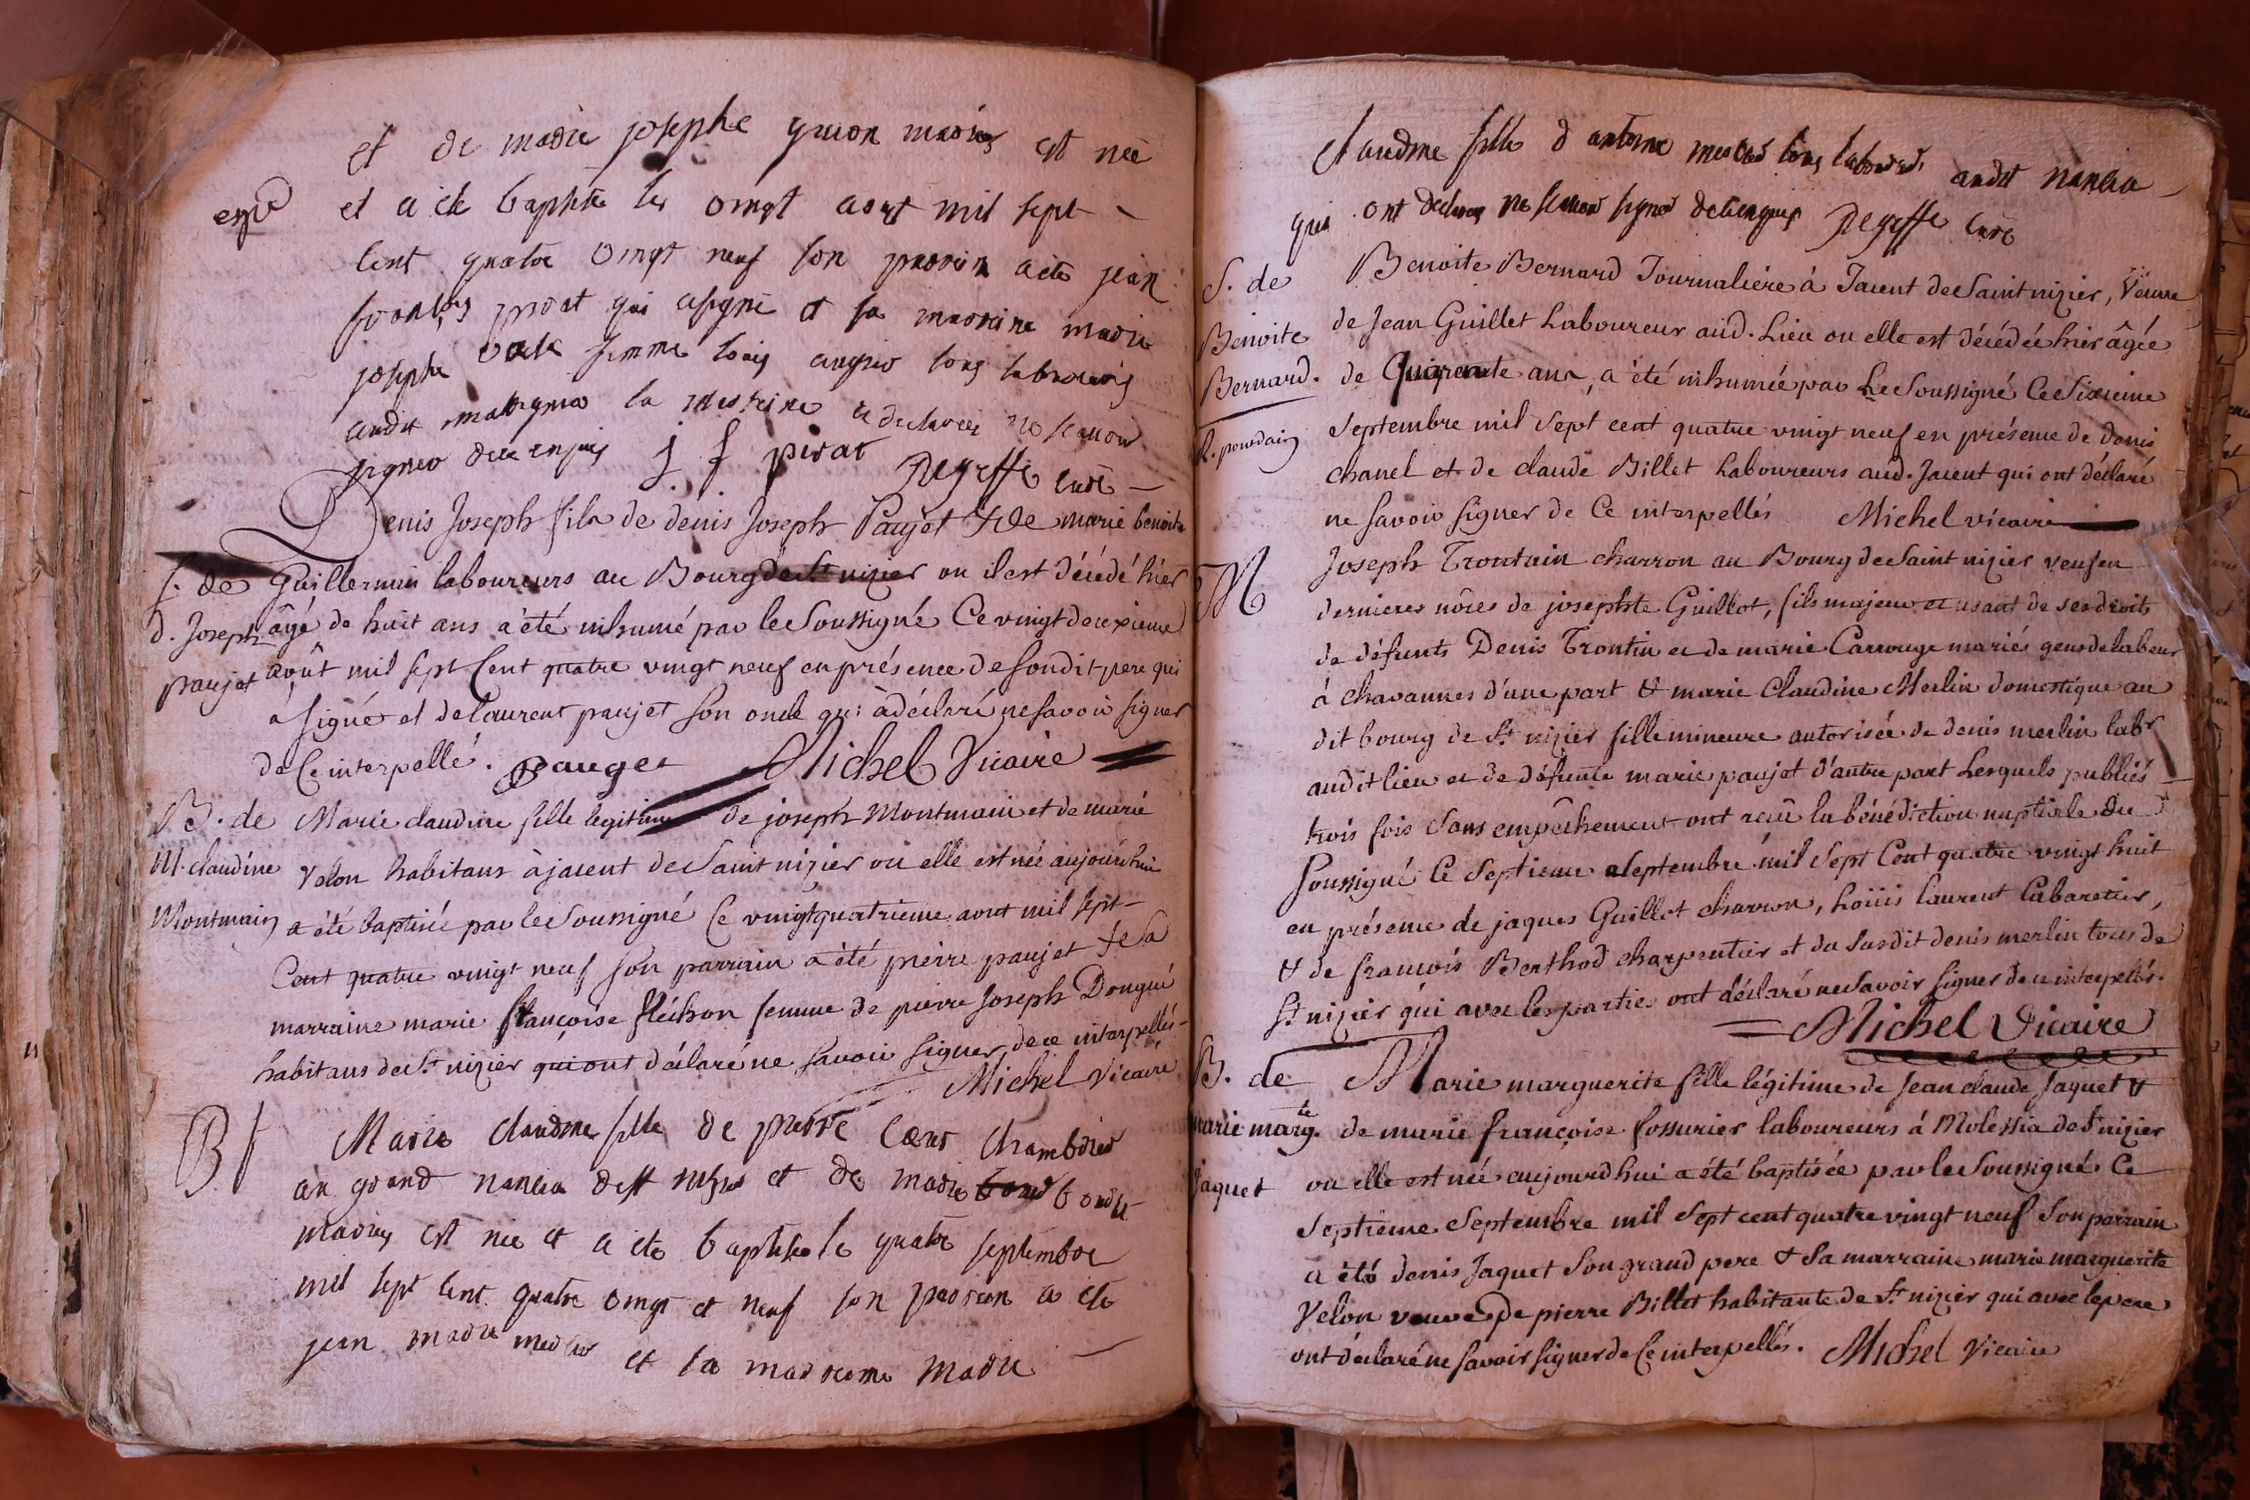 et de marie josephe guion mariés est née
expé et a été baptisée le vingt aout mil sept
cent quatre vingt neuf son parrein a été jean
françois pirat qui a signé et sa marreine marie
josephe femme louis tous laboureurs
audit la marreine a déclarée ne scavoir
signer de ce enquis j f pirat Degeffe curé
Denis Joseph fils de denis Joseph Paujet & de marie benoite
S. de Guillermin laboureurs au Bourg de St nizier ou il est décédé hier
d. Joseph âgé de huit ans a été inhumé par le Soussigné Ce vingt deuxieme
paujet août mil sept Cent quatre vingt neuf en présence de son dit pere qui
a signé et de laurent paujet son oncle qui à déclaré ne savoir signer
de Ce interpellé. pauget Michel Vicaire
B. de Marie claudine fille legitime de joseph Montmain et de marie
M. claudine Velon habitans à jacent de Saint nizier ou elle est née aujourd'hui
Montmain a été baptisée par le Soussigné Ce vingt quatrieme aout mil sept
Cent quatre vingt neuf son parrain a été pierre paujet & Sa
marraine marie françoise fléchon femme de pierre Joseph Dongué
habitans de St nizier qui ont déclaré ne savoir signer de ce interpellés
Michel Vicaire
B Marie claudine fille de pierre Cœur
au grand nancia de st nizier et de marie
mariés est née et a été baptisée le quatre septembre
mil sept cent quatre vingt et neuf son parrein a été
jean marie et sa marreine marie
claudine fille d antoine tous laboureurs audit nancia
qui ont declarés ne scavoir signer de ce enquis Degeffe curé
S. de Benoite Bernard Journaliere à Jacent de Saint nizier, Veuve
Benoite de Jean Guillet Laboureur aud. Lieu ou elle est décédée hier âgée
Bernard. de Quarante ans, a été inhumée par Le Soussigné Ce Sixieme
septembre mil sept cent quatre vingt neuf en présence de denis
chanel et de claude Billet Laboureurs aud. Jacent qui ont déclaré
ne savoir signer de Ce interpellés Michel vicaire
M Joseph Trontain charron au Bourg de Saint nizier veuf en
dernieres nôces de josephte Guillot, fils majeur et usant de ses droits
de défunts Denis Trontin et de marie Carrouge mariés gens de labeur
à chavannes d'une part & marie Claudine Merlin domestique au
dit bourg de St nizier fille mineure autorisée de denis merlin labr
audit lieu et de défunte marie paujet d'autre part Lesquels publiés
trois fois Sans empêchement ont reçu la bénédiction nuptiale du
Soussigné le septieme septembre mil sept Cent quatre vingt huit
en présence de jaques Guillot charron, Loüis laurent Cabaretier,
& de françois Berthod charpentier et du susdit denis merlin tous de
St nizier qui avec les parties ont déclaré ne Savoir signer de ce interpellés.
Michel Vicaire
B. de Marie marguerite fille légitime de Jean claude Jaquet &
marie marg.te de marie françoise fossurier laboureurs à Molessia de St nizier
jaquet ou elle est née aujourd'hui a été baptisée par le Soussigné Ce
septieme septembre mil sept cent quatre vingt neuf Son parrain
a été denis Jaquet Son grand pere & Sa marraine marie marguerite
Velon veuve De pierre Billet habitante de St nizier qui avec le pere
ont déclaré ne savoir signer de Ce interpellés. Michel Vicaire